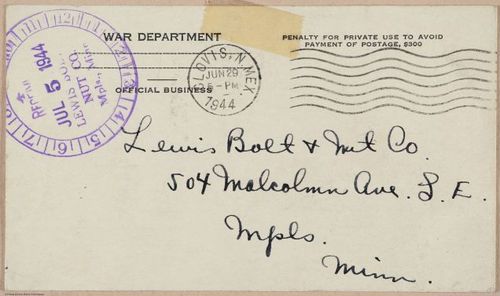 WAR DEPARTMENT
OFFICIAL BUSINESS
PENALTY FOR PRIVATE USE TO AVOID
PAYMENT OF POSTAGE, $300
CLOVIS, N. MEX.
JUN 29
PM
1944
JUL 5 1944
LEWIS BOLT
NUT CO.
Mpls, Minn
12
13
14
15
16
17
Lewis Bolt & Nut Co.
504 Malcolmn Ave. S. E.
Mpls.
Minn.